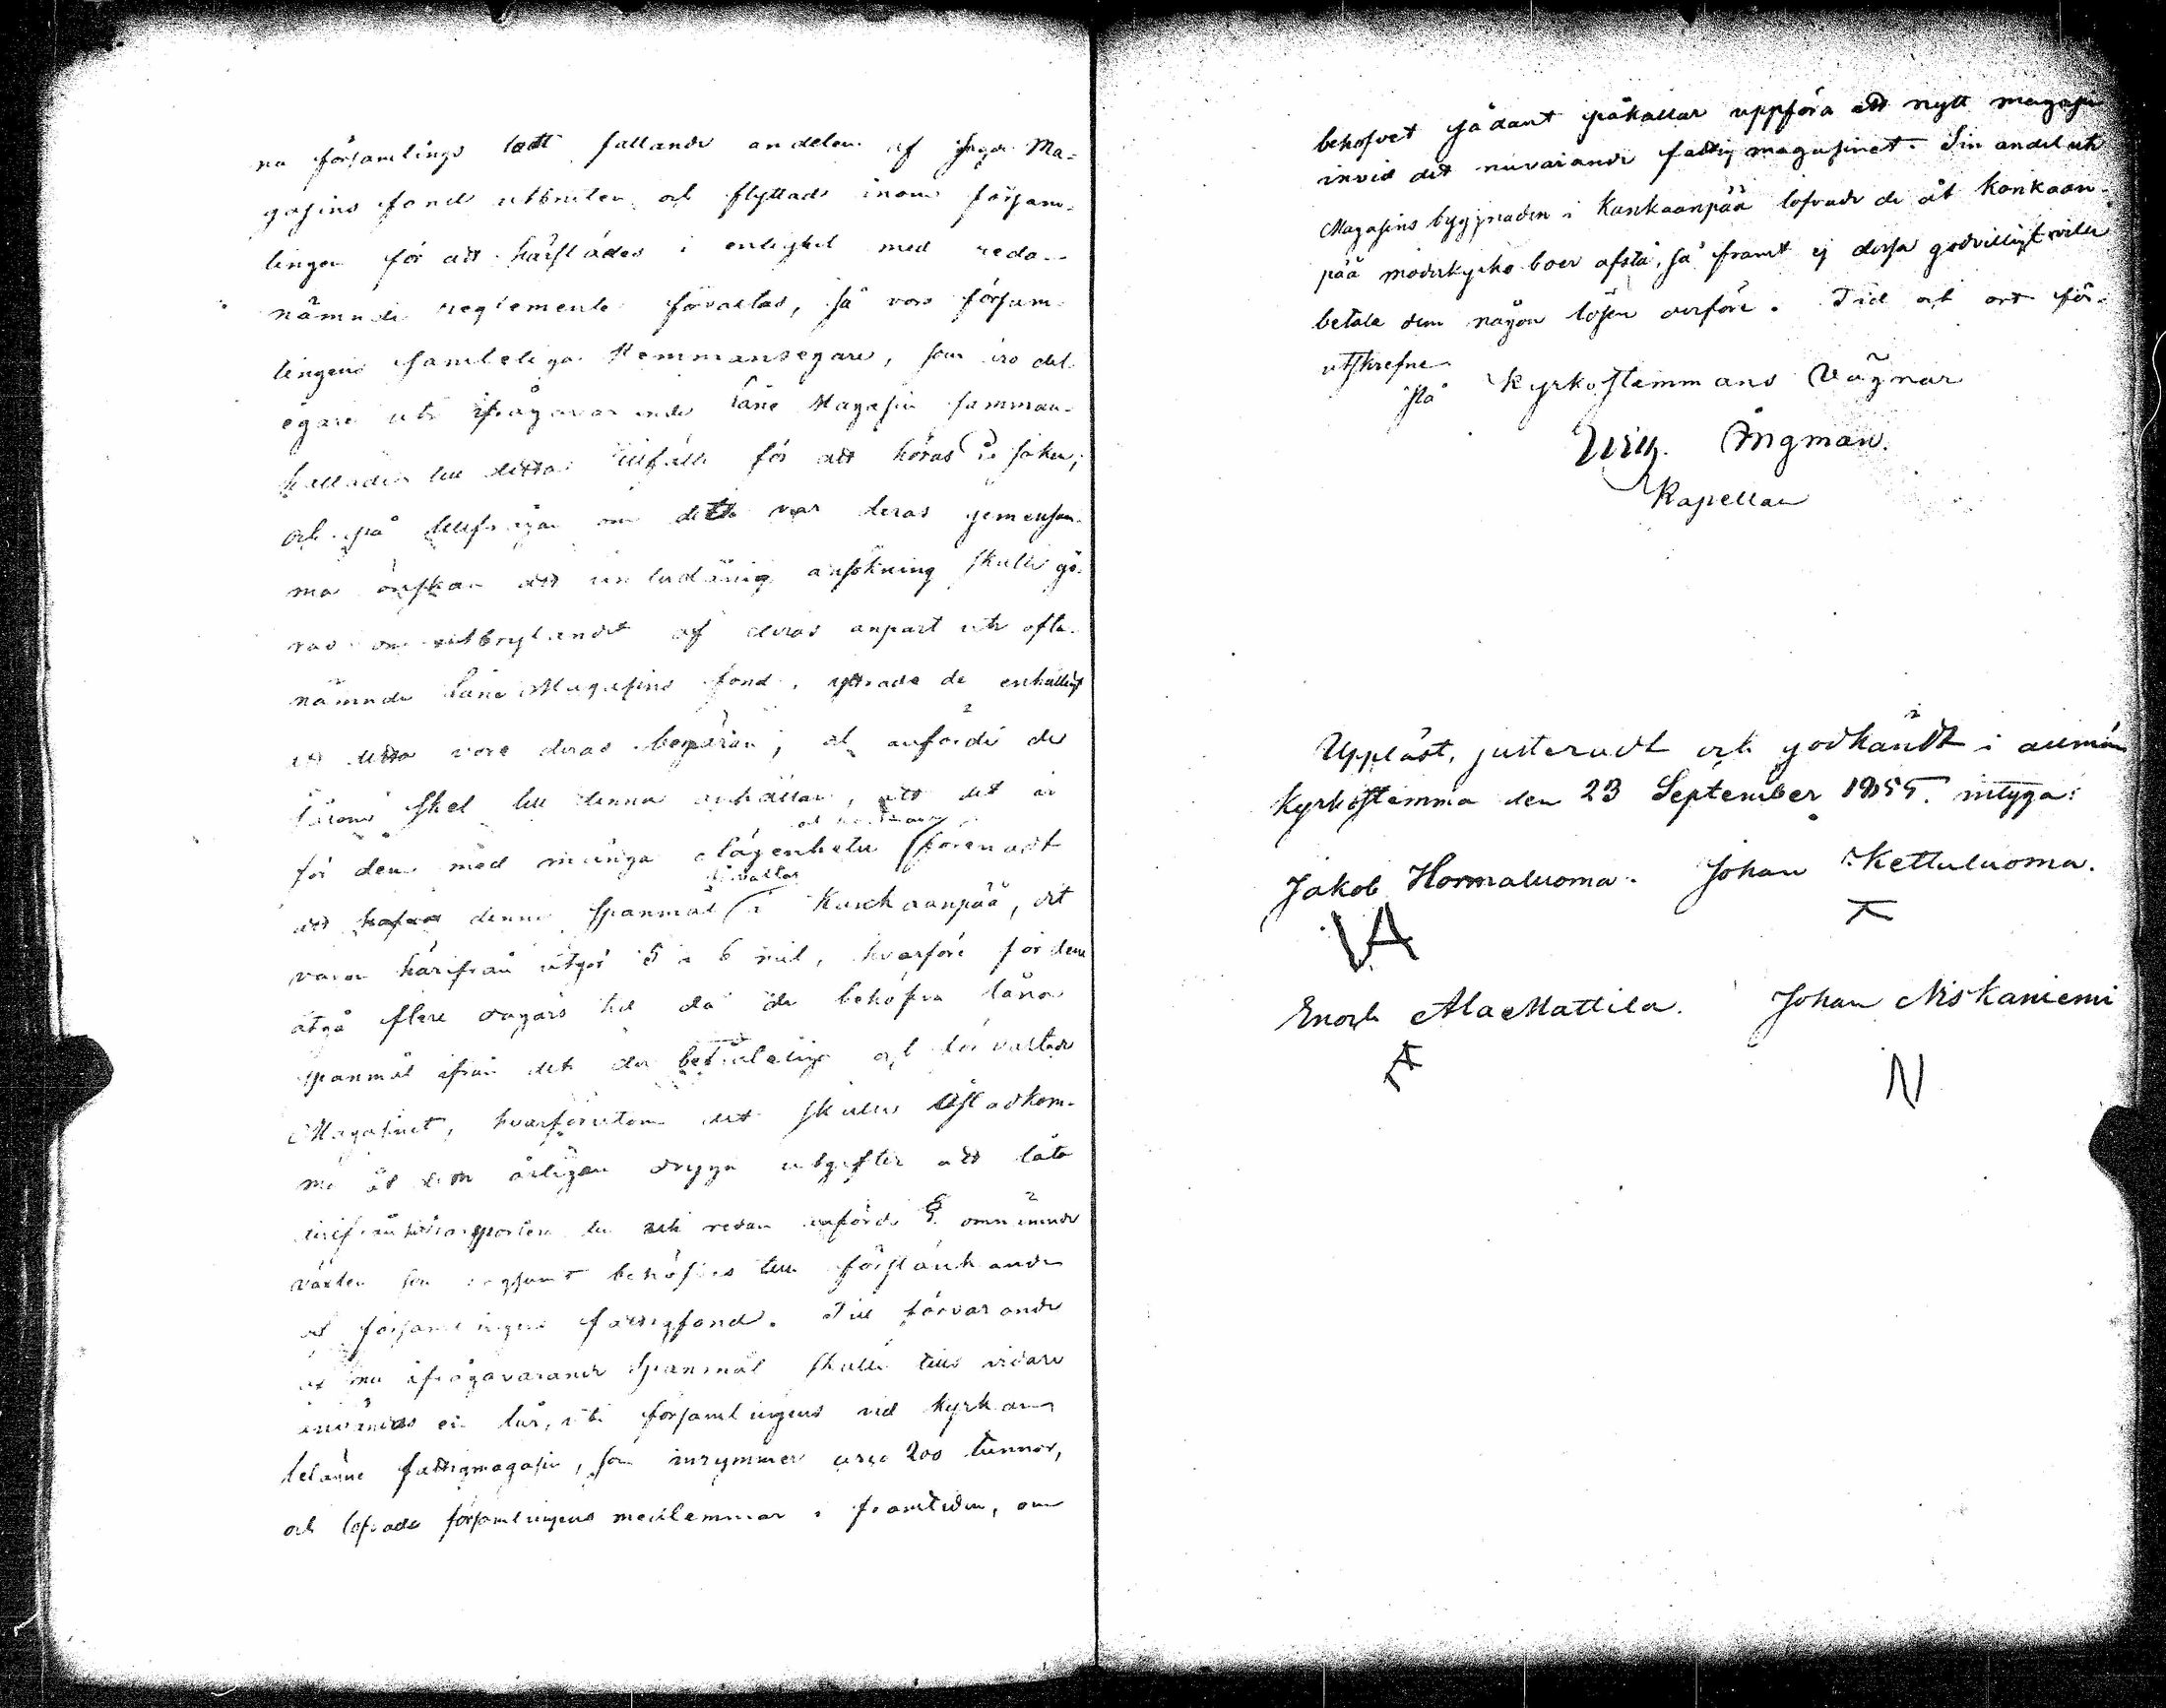 na församlings lott fallande andelen af sagde Ma-
gasins fond utbruten och flyttad inom försam-
lingen för att härstädes i enlighet med reda-
nämnde reglemente förvaltas, så voro försam-
lingens samteliga Hemmansegare, som äro del-
egare uti ifrågavarande Låne Magasin samman-
kallade till detta tillfälle för att höras i saken;
och på tillfrågan om detta var deras gemensam-
ma önskan att underdånig ansökning skulle gö-
ras om utbrytandet af deras anpart uti ofta-
nämnde Låne Magasins fond, yttrade de enhälligt
att detta vore deras begäran; och anförde de
såsom skel till denna anhållan, att det är
för dem med många olägenheter förenadt
att denna Spanmål förvaltas i Kankaanpää, dit
vägen härifrån utgör 5 a 6 mil, hvarföre för dem
åtgå flere dagars tid då de behöfva låna
spanmål ifrån det der befinteliga och förvaltade
Magasinet, hvarförutom det skulle åstadkom-
ma åt dem årligen dryga utgifter att låta
härifrån transportera den uti redan anförde §. omnämnde
växten som behöfves till förstärkande
af församlingens fattigfond. Till förvarande
af nu ifrågavarande Spanmål skulle tills vidare
användas en lår, uti församlingens vid kyrkan
belägne fattigmagasin, som inrymmer circa 200 tunnor,
och lofvade församlingens medlemmar i framtiden, om
behofvet sådant påkallar uppföra ett nytt magasin
invid det nuvarande fattigmagasinet. Sin andel uti
Magasins byggnaden i Kankaanpää lofvade de åt Kankaan-
pää moderkyrko boer afstå, så framt ej dessa godvilligt ville
betala dem någon lösen derföre. Tid och ort för-
utskrefne
På Kyrkostemmans Vägnar
Wilh. Ingman.
Kapellan
Uppläst, justeradt och godkändt i allmän
Kyrkostemma den 23 September 1855. intyga:
Jakob Hormaluoma. Johan Kettuluoma.
Enoch AlaMattila. Johan Niskaniemi
N